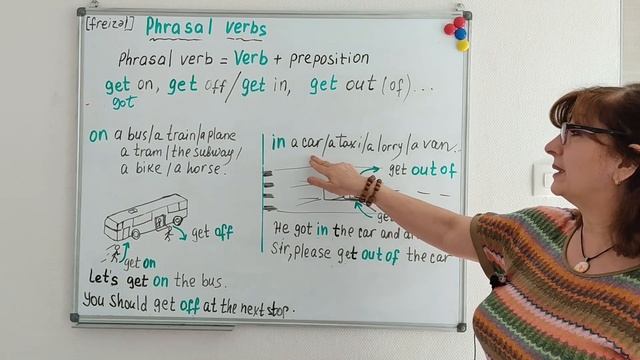 [freizəl] Phrasal verbs
Phrasal verb = Verb + preposition
get on, get off / get in, get out (of)...
got
on a bus / a train / a plane
a tram / the subway /
a bike / a horse.
get off
get on
Let's get on the bus.
You should get off at the next stop.
in a car / a taxi / a lorry / a van...
get out of
He got in the car and
Sir, please get out of the car